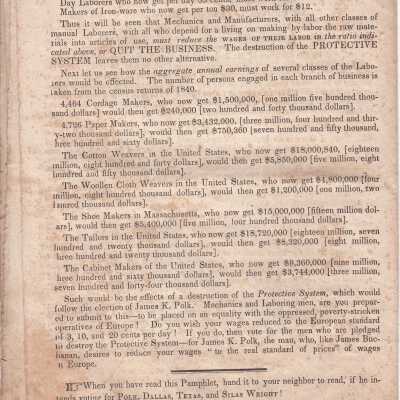 Day Laborers who now get per day
Makers of Iron-ware who now get per ton $30, must work for $12.
Thus it will be seen that Mechanics and Manufacturers, with all other classes of
manual Laborers, with all who depend for a living on making by labor the raw mate-
rials into articles of use, must reduce the WAGES OF THEIR LABOR in the ratio indi-
cated above, or QUIT THE BUSINESS. The destruction of the PROTECTIVE
SYSTEM leaves them no other alternative.
Next let us see how the aggregate annual earnings of several classes of the Labo-
rers would be effected. The number of persons engaged in each branch of business is
taken from the census returns of 1840.
4,464 Cordage Makers, who now get $1,500,000, [one million five hundred thou-
sand dollars] would then get $240,000 [two hundred and forty thousand dollars].
4,796 Paper Makers, who now get $3,432,000, [three million, four hundred and thir-
y-two thousand dollars], would then get $750,360 [seven hundred and fifty thousand,
hree hundred and sixty dollars].
The Cotton Weavers in the United States, who now get $18,000,840, [eighteen
million, eight hundred and forty dollars], would then get $5,850,000 [five million, eight
hundred and fifty thousand dollars].
The Woollen Cloth Weavers in the United States, who now get $4,800,000 [four
million, eight hundred thousand dollars], would then get $1,200,000 [one million, two
hundred thousand dollars].
The Shoe Makers in Massachusetts, who now get $15,000,000 [fifteen million dol-
ars], would then get $5,400,000 [five million, four hundred thousand dollars].
The Tailors in the United States, who now get $18,720,000 [eighteen million, seven
hundred and twenty thousand dollars], would then get $8,320,000 [eight million,
hree hundred and twenty thousand dollars].
The Cabinet Makers of the United States, who now get $9,360,000 [nine million,
hree hundred and sixty thousand dollars], would then get $3,744,000 [three million,
seven hundred and forty-four thousand dollars].
Such would be the effects of a destruction of the Protective System, which would
follow the election of James K. Polk. Mechanics and Laboring men, are you prepar-
ed to submit to this—to be placed on an equality with the oppressed, poverty-stricken
operatives of Europe? Do you wish your wages reduced to the European standard
of 3, 10, and 20 cents per day? If you do, then vote for the men who are pledged
to destroy the Protective System—for James K. Polk, the man, who, like James Buc-
hanan, desires to reduce your wages "to the real standard of prices" of wages
n Europe.
☞When you have read this Pamphlet, hand it to your neighbor to read, if he in-
tends voting for POLK, DALLAS, TEXAS, and SILAS WRIGHT!